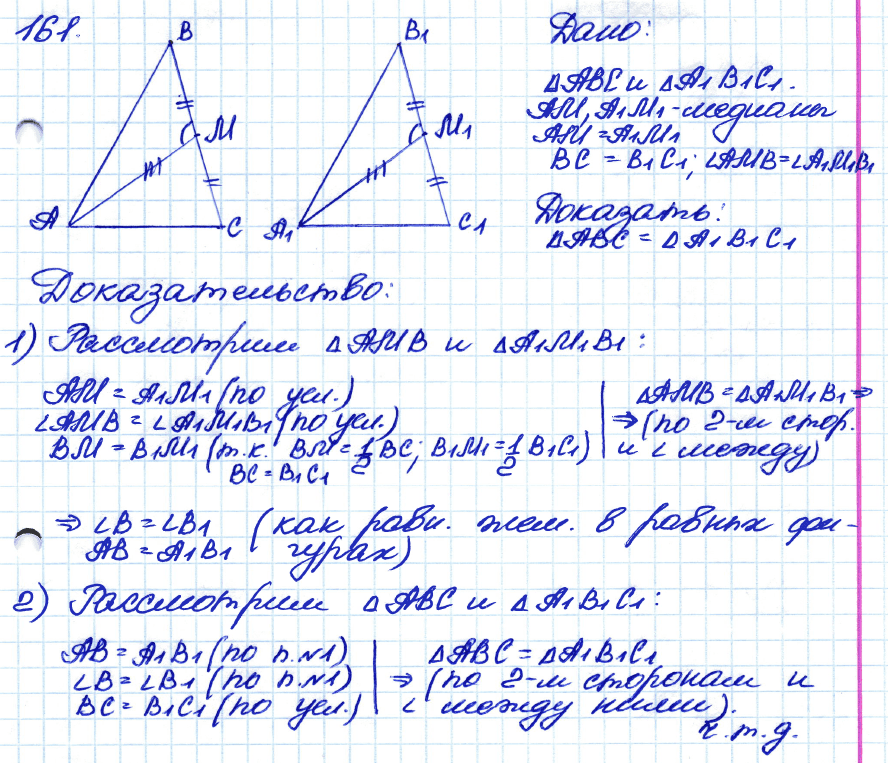 161.
B
M
A
C
B1
M1
A1
C1
Дано:
△ABC и △A1B1C1.
AM, A1M1 - медианы
AM = A1M1
BC = B1C1; ∠AMB = ∠A1M1B1
Доказать:
△ABC = △A1B1C1
Доказательство:
1) Рассмотрим △AMB и △A1M1B1:
AM = A1M1 (по усл.)
∠AMB = ∠A1M1B1 (по усл.)
BM = B1M1 (т.к. BM = 1/2 BC; B1M1 = 1/2 B1C1)
BC = B1C1
△AMB = △A1M1B1 ⇒
⇒ (по 2-м стор.
и ∠ между)
⇒ ∠B = ∠B1 (как равн. эем. в равных фи-
AB = A1B1 гурах)
2) Рассмотрим △ABC и △A1B1C1:
AB = A1B1 (по п.№1)
∠B = ∠B1 (по п.№1)
BC = B1C1 (по усл.)
△ABC = △A1B1C1
⇒ (по 2-м сторонам и
∠ между ними).
ч.т.д.